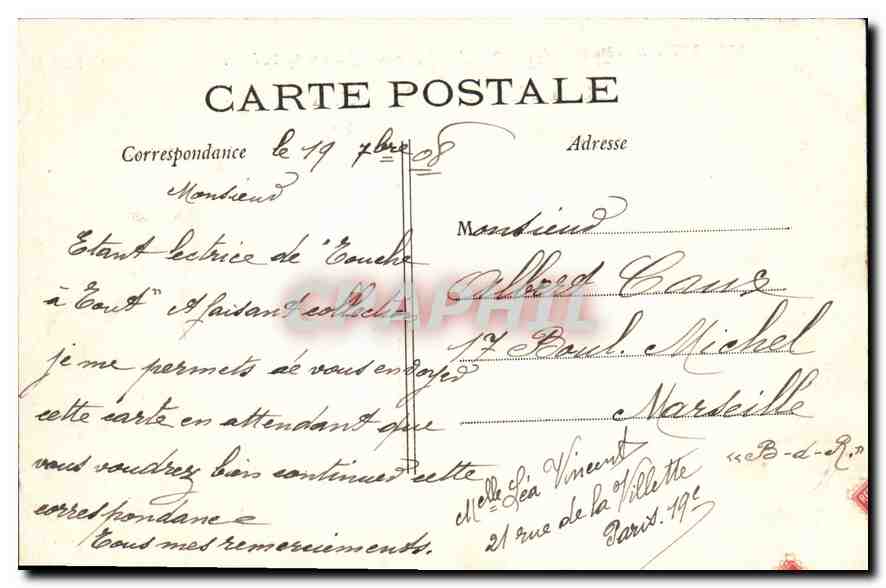 CARTE POSTALE
Correspondance le 19 7bre 08
Adresse
Monsieur
Etant lectrice de "Touche
à Tout" & faisant collection
je me permets de vous envoyer
cette carte en attendant que
vous voudrez bien continuer cette
correspondance
Tous mes remerciements.
Monsieur
Albert
17 Boul. Michel
Marseille
«B-d-R.»
Melle Léa Vincent
21 rue de la Villette
Paris. 19e
CPAPHIL